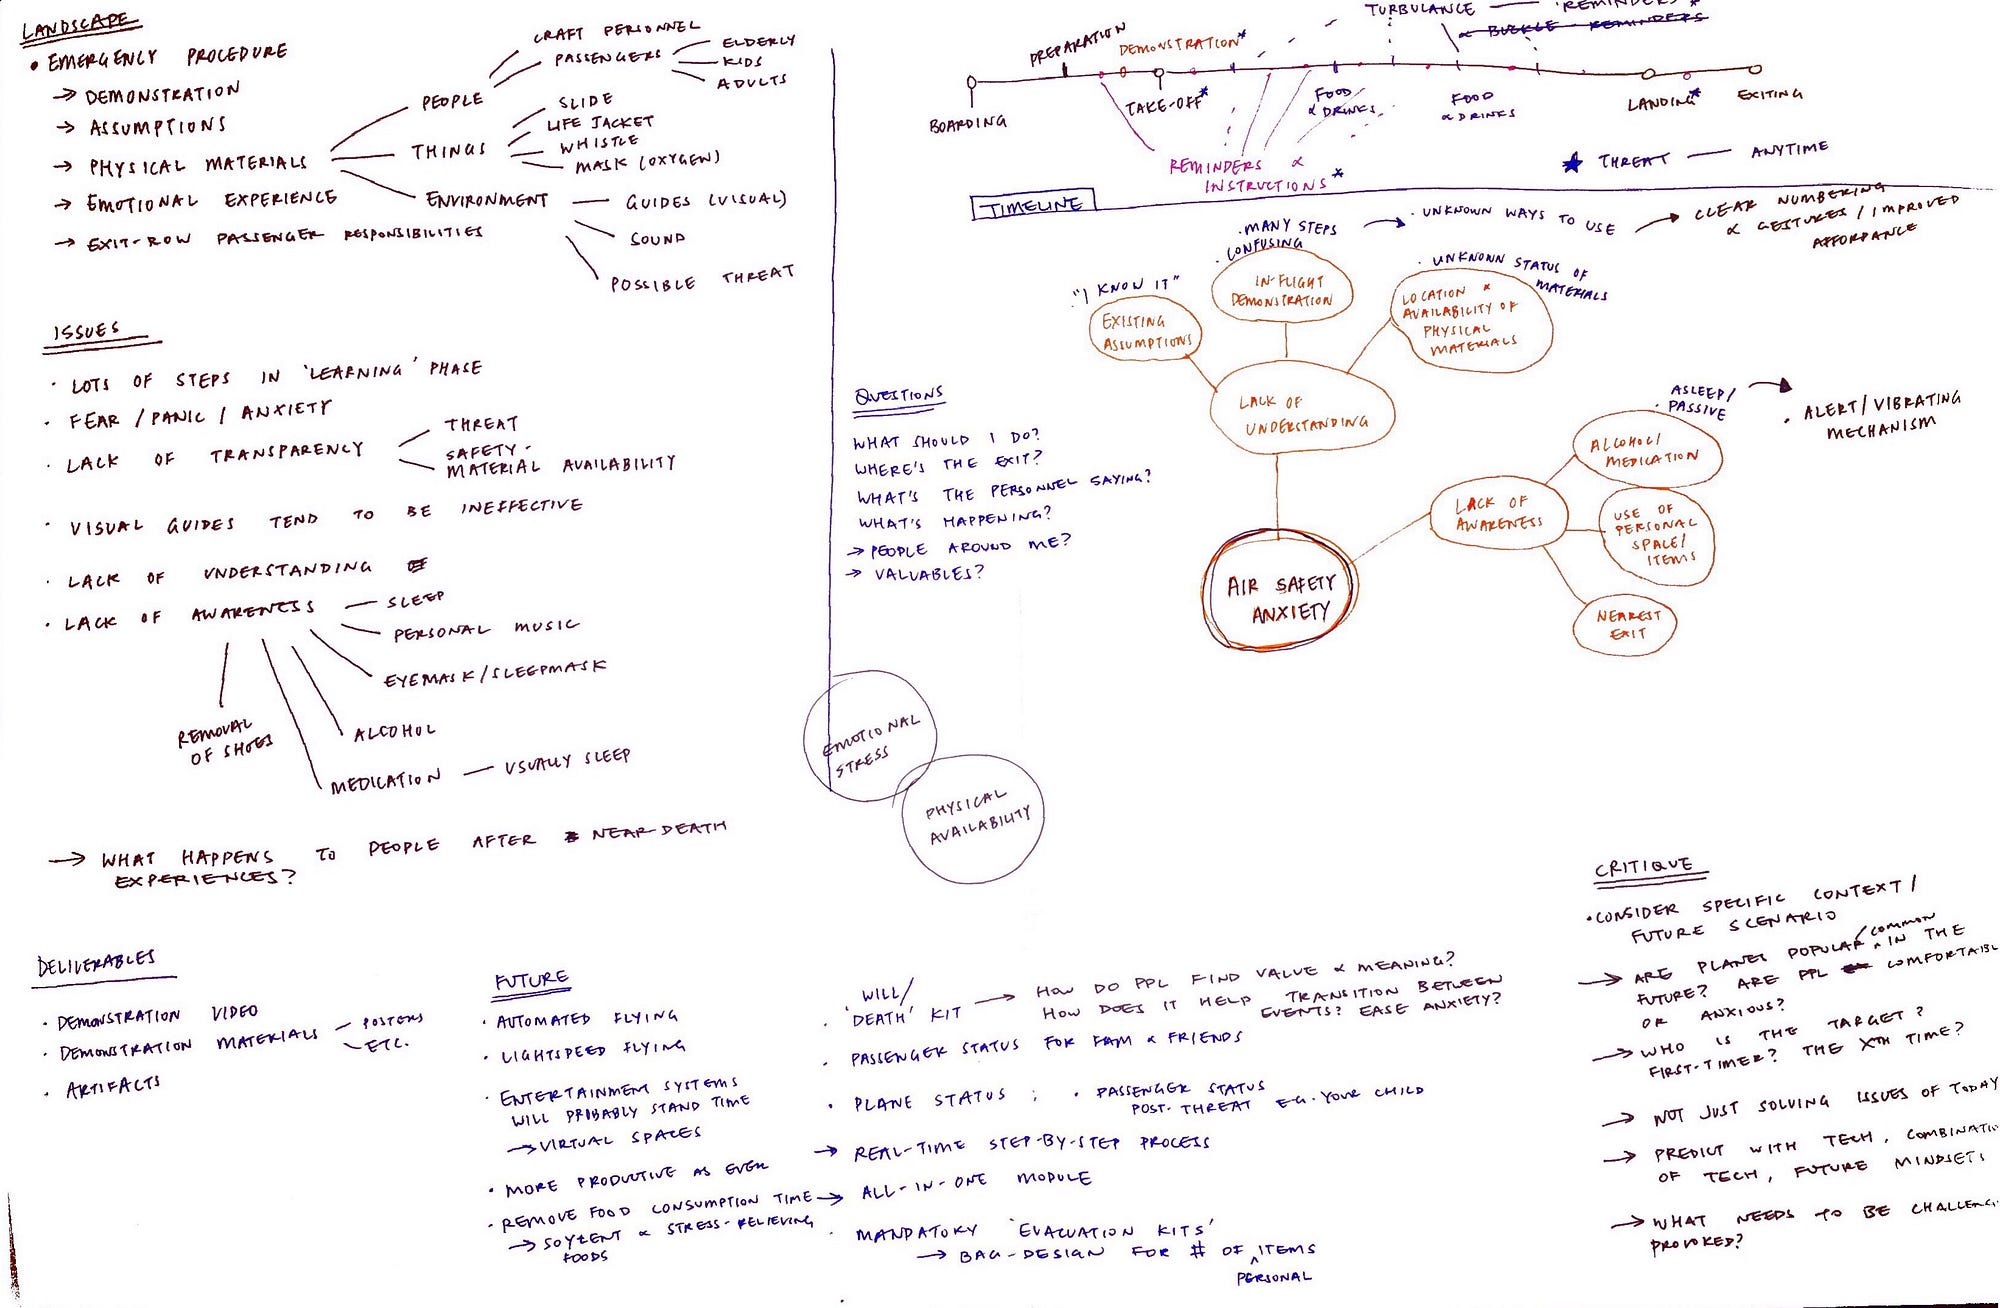 LANDSCAPE
• EMERGENCY PROCEDURE
→ DEMONSTRATION
→ ASSUMPTIONS
→ PHYSICAL MATERIALS
→ EMOTIONAL EXPERIENCE
→ EXIT-ROW PASSENGER RESPONSIBILITIES
PEOPLE
CRAFT PERSONNEL
PASSENGERS
ELDERLY
KIDS
ADULTS
THINGS
SLIDE
LIFE JACKET
WHISTLE
MASK (OXYGEN)
ENVIRONMENT
GUIDES (VISUAL)
SOUND
POSSIBLE THREAT
ISSUES
· LOTS OF STEPS IN 'LEARNING' PHASE
· FEAR / PANIC / ANXIETY
· LACK OF TRANSPARENCY
THREAT
SAFETY-
MATERIAL AVAILABILITY
· VISUAL GUIDES TEND TO BE INEFFECTIVE
· LACK OF UNDERSTANDING
· LACK OF AWARENESS
SLEEP
PERSONAL MUSIC
EYEMASK/SLEEPMASK
ALCOHOL
MEDICATION — USUALLY SLEEP
REMOVAL
OF SHOES
→ WHAT HAPPENS TO PEOPLE AFTER NEAR-DEATH
EXPERIENCES?
TURBULANCE — 'REMINDERS'
& BUCKLE REMINDERS
PREPARATION
DEMONSTRATION*
BOARDING
TAKE-OFF*
FOOD
& DRINKS
FOOD
& DRINKS
LANDING*
EXITING
REMINDERS &
INSTRUCTIONS*
★ THREAT — ANYTIME
TIMELINE
· MANY STEPS
· CONFUSING
→ · UNKNOWN WAYS TO USE
→ CLEAR NUMBERING
& GESTURES / IMPROVED
AFFORDANCE
· "I KNOW IT"
EXISTING
ASSUMPTIONS
IN-FLIGHT
DEMONSTRATION
· UNKNOWN STATUS OF
MATERIALS
LOCATION &
AVAILABILITY OF
PHYSICAL
MATERIALS
LACK OF
UNDERSTANDING
AIR SAFETY
ANXIETY
LACK OF
AWARENESS
ALCOHOL/
MEDICATION
· ASLEEP/
PASSIVE
→ · ALERT/VIBRATING
MECHANISM
USE OF
PERSONAL
SPACE/
ITEMS
NEAREST
EXIT
QUESTIONS
WHAT SHOULD I DO?
WHERE'S THE EXIT?
WHAT'S THE PERSONNEL SAYING?
WHAT'S HAPPENING?
→ PEOPLE AROUND ME?
→ VALUABLES?
EMOTIONAL
STRESS
PHYSICAL
AVAILABILITY
DELIVERABLES
· DEMONSTRATION VIDEO
· DEMONSTRATION MATERIALS
POSTERS
ETC.
· ARTIFACTS
FUTURE
· AUTOMATED FLYING
· LIGHTSPEED FLYING
· ENTERTAINMENT SYSTEMS
WILL PROBABLY STAND TIME
→ VIRTUAL SPACES
· MORE PRODUCTIVE AS EVER
· REMOVE FOOD CONSUMPTION TIME
→ SOYLENT & STRESS-RELIEVING
FOODS
WILL/
· 'DEATH' KIT → HOW DO PPL FIND VALUE & MEANING?
HOW DOES IT HELP TRANSITION BETWEEN
EVENTS? EASE ANXIETY?
· PASSENGER STATUS FOR FAM & FRIENDS
· PLANE STATUS ; · PASSENGER STATUS
POST-THREAT E.G. YOUR CHILD
→ REAL-TIME STEP-BY-STEP PROCESS
→ ALL-IN-ONE MODULE
· MANDATORY 'EVACUATION KITS'
→ BAG-DESIGN FOR # OF ITEMS
PERSONAL
CRITIQUE
· CONSIDER SPECIFIC CONTEXT /
FUTURE SCENARIO
→ ARE PLANES POPULAR /COMMON IN THE
FUTURE? ARE PPL COMFORTABL
OR ANXIOUS?
→ WHO IS THE TARGET?
FIRST-TIMER? THE XTH TIME?
→ NOT JUST SOLVING ISSUES OF TODAY
→ PREDICT WITH TECH, COMBINATIO
OF TECH, FUTURE MINDSETS
→ WHAT NEEDS TO BE CHALLENG
PROVOKED?